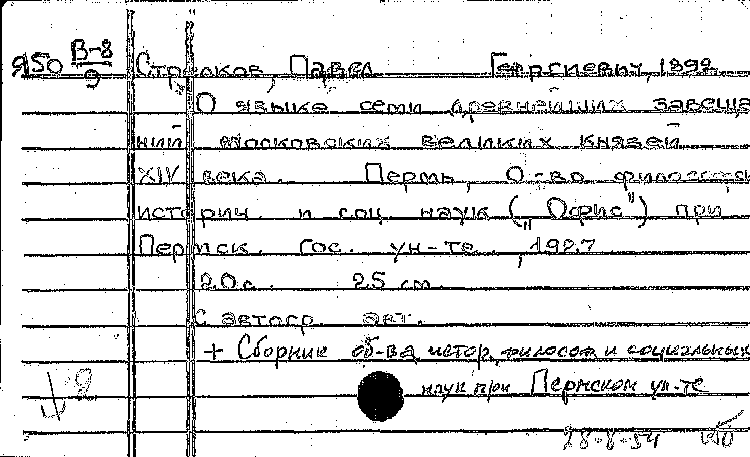 Я50 В-8/9 Стрелков, Павел Георгиевич, 1899
О языке семи древнейших завеща
ний московских великих князей
XIV века. Пермь, О-во философск
историч. и соц. наук („Офис") при
Пермск. Гос. ун-те, 1927
20с. 25 см.
С автогр. авт.
+ Сборник об-ва истор, философ и социальных
наук при Пермском ун-те
2
28-8-54